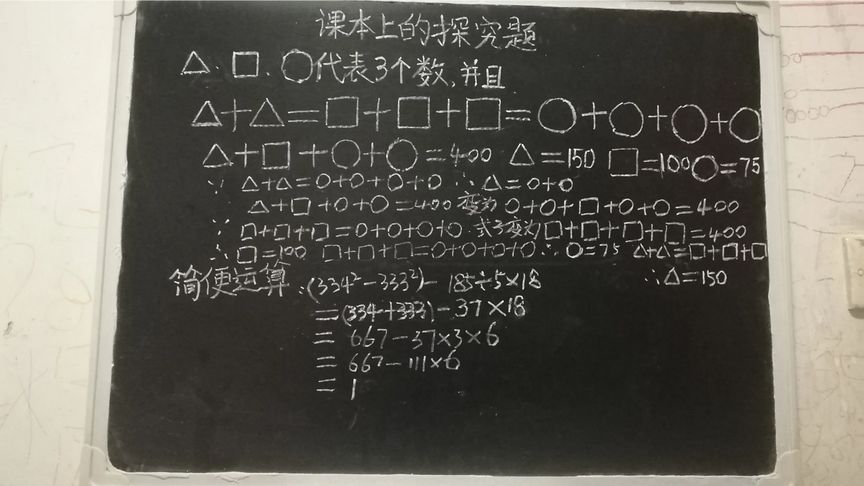 课本上的探究题
△.□.○代表3个数,并且
△+△=□+□+□=○+○+○+○
△+□+○+○=400 △=150 □=100 ○=75
∵ △+△=○+○+○+○ ∴△=○+○
△+□+○+○=400 变为 ○+○+□+○+○=400
∵ □+□+□=○+○+○+○ 式子变为□+□+□+□=400
∴□=100 □+□+□=○+○+○+○ ∴○=75 △+△=□+□+□
∴△=150
简便运算:(334²-333²)-185÷5×18
=(334+333)-37×18
=667-37×3×6
=667-111×6
=1